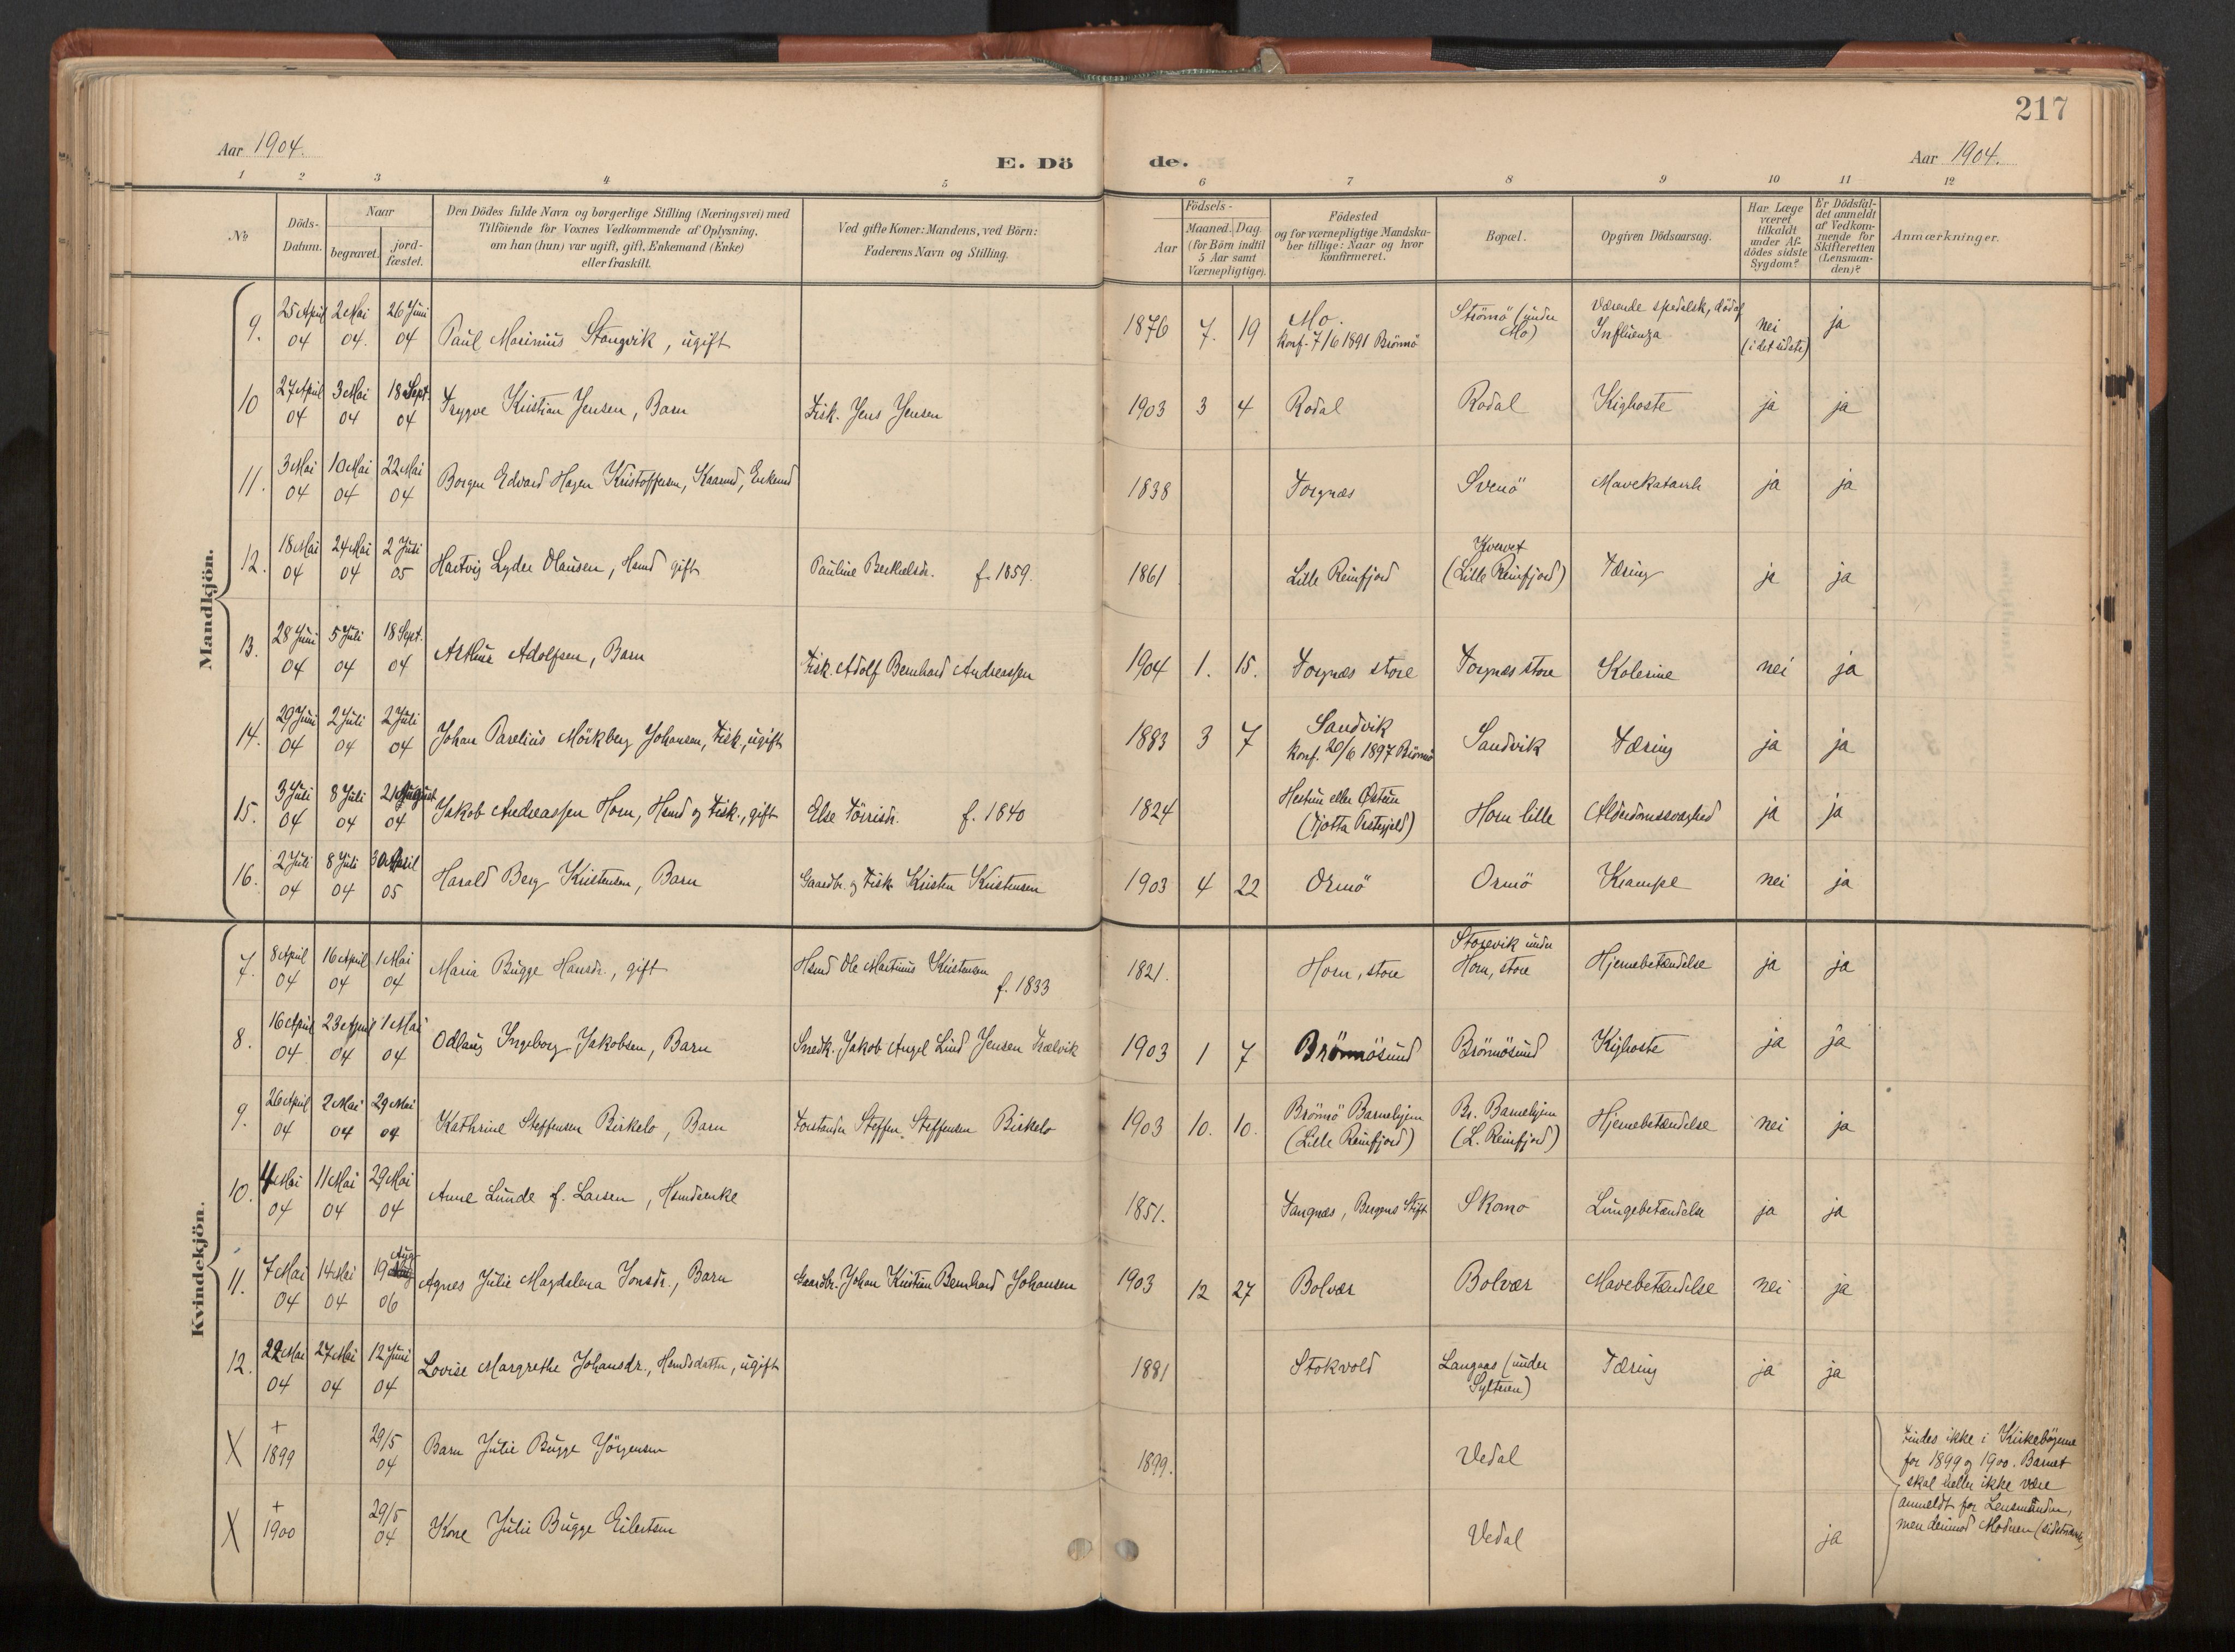 217
Aar 1904.
E. Dö
de.
Aar 1904.
1 2 3 4 5 6 7 8 9 10 11 12
No
Döds-
Datum.
Naar
begravet.
jord-
fæstet.
Den Dödes fulde Navn og borgerlige Stilling (Næringsvei) med
Tilföiende for Voxnes Vedkommende af Oplysning,
om han (hun) var ugift, gift, Enkemand (Enke)
eller fraskilt.
Ved gifte Koner: Mandens, ved Börn:
Faderens Navn og Stilling.
Födsels-
Aar
Maaned.
Dag.
(for Börn indtil
5 Aar samt
Værnepligtige).
Födested
og for værnepligtige Mandska-
ber tillige: Naar og hvor
konfirmeret.
Bopæl.
Opgiven Dödsaarsag.
Har Læge
været
tilkaldt
under Af-
dödes sidste
Sygdom?
Er Dödsfal-
det anmeldt
af Vedkom-
mende for
Skifteretten
(Lensman-
den)?
Anmærkninger.
Mandkjön.
9. 25 April 04 2 Mai 04. 26 Juni 04 Paul Marinius Stangvik, ugift 1876 7. 19 Mo.
Konf. 7/6 1891 Brönnö
Strömö (under
Mo)
Værende spedalsk, död af
Influenza
nei
(i det sidste)
ja
10 27 April 04 3 Mai 04 18 Sept. 04 Trygve Kristian Jensen, Barn Fisk. Jens Jensen 1903 3 4 Rodal Rodal Kighoste ja ja
11. 3 Mai 04 10 Mai 04 22 Mai 04 Borger Edvard Hagen Kristoffersen, Kaarmd, Enkemd 1838 Torgnæs Svenö Mavekatarrh ja ja
12. 18 Mai 04 24 Mai 04 2 Juli 05 Hartvig Lyder Olausen, Hsmd gift Pauline Berthelsdr. f. 1859. 1861 Lille Reinfjord Kvervet
(Lille Reinfjord)
Tæring ja ja
13. 28 Juni 04 5 Juli 04 18 Sept. 04 Arthur Adolfsen, Barn Fisk. Adolf Bernhard Andreassen 1904 1. 15. Torgnæs store Torgnæs store Kolerine nei ja
14. 29 Juni 04 2 Juli 04 2 Juli 04 Johan Parelius Mörkberg Johansen, Fisk., ugift 1883 3 7 Sandvik
Konf. 20/6 1897 Brönnö
Sandvik Tæring ja ja
15. 3 Juli 04 8 Juli 04 21 August 04 Jakob Andreassen Horn, Hsmd og Fisk., gift Else f. 1840 1824 Hestun eller Östun
(Tjötta Prestegjeld)
Horn lille Alderdomssvaghed ja ja
16. 2 Juli 04 8 Juli 04 30 April 05 Harald Berg Kristensen, Barn Gaardbr. og Fisk. Kristen Kristensen 1903 4 22 Ormö Ormö Krampe nei ja
Kvindekjön.
7. 8 April 04 16 April 04 1 Mai 04 Maria Bugge Hansdr., gift Hsmd Ole Martinus Kristensen
f. 1833
1821. Horn, store Storevik under
Horn, store
Hjernebetændelse ja ja
8. 16 April 04 23 April 04 1 Mai 04 Odlaug Ingeborg Jakobsen, Barn Snedk. Jakob Angel Lind Jensen Trælvik 1903 1 7 Brönnösund Brönnösund Kighoste ja ja
9. 26 April 04 2 Mai 04 29 Mai 04 Kathrine Steffensen Birkelo, Barn Forstander Steffen Steffensen Birkelo 1903 10. 10. Brönnö Barnehjem
(Lille Reinfjord)
Br. Barnehjem
(L. Reinfjord)
Hjernebetændelse nei ja
10. 4 Mai 04 11 Mai 04 29 Mai 04 Anne Lunde f. Larsen, Hsmdsenke 1851. Tangnæs, Bergens Stift Skomo Lungebetændelse ja ja
11. 7 Mai 04 14 Mai 04 19 Aug 06 Agnes Julie Magdalena Jonsdr., Barn Gaardbr. Johan Kristian Bernhard Johansen 1903 12 27 Bolvær Bolvær Mavebetændelse nei ja
12. 22 Mai 04 27 Mai 04 12 Juni 04 Lovise Margrethe Johansdr., Hsmdsdatter, ugift 1881 Stokvold Langaas (under
Sylteren)
Tæring ja ja
X + 1899 29/5 04 Barn Julie Bugge Jörgensen 1899. Vedal
X + 1900 29/5 04 Kone Julie Bugge Eilertsen Vedal ja
Findes ikke i Kirkebögerne
for 1899 og 1900. Barnet
skal heller ikke være
anmeldt for Lensmanden,
men derimod Moderen (sidstnævnte)